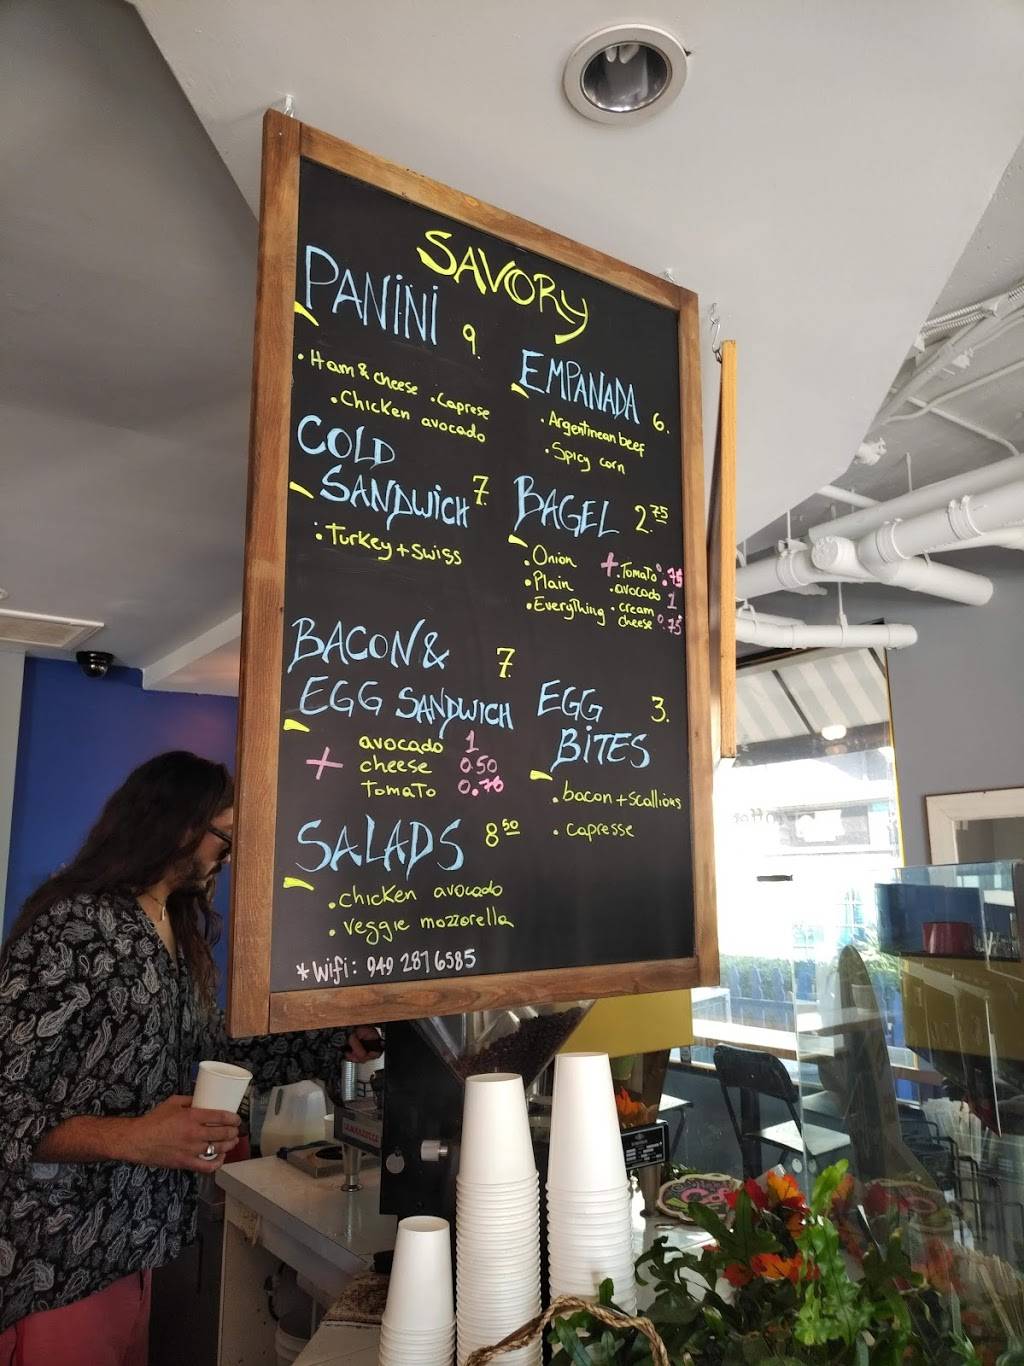 SAVORY
PANINI 9.
• Ham & cheese • Caprese
• Chicken avocado
COLD
SANDWICH 7.
• Turkey + swiss
BACON & 7.
EGG SANDWICH
+ avocado 1
cheese 0.50
Tomato 0.76
SALADS 8.50
• chicken avocado
• veggie mozzorella
* Wifi: 949 287 6585
EMPANADA 6.
• Argentinean beef
• Spicy corn
BAGEL 2.75
• Onion + • Tomato 0.75
• Plain • avocado 1
• Everything • cream
cheese 0.75
EGG 3.
BITES
• bacon + scallions
• capresse